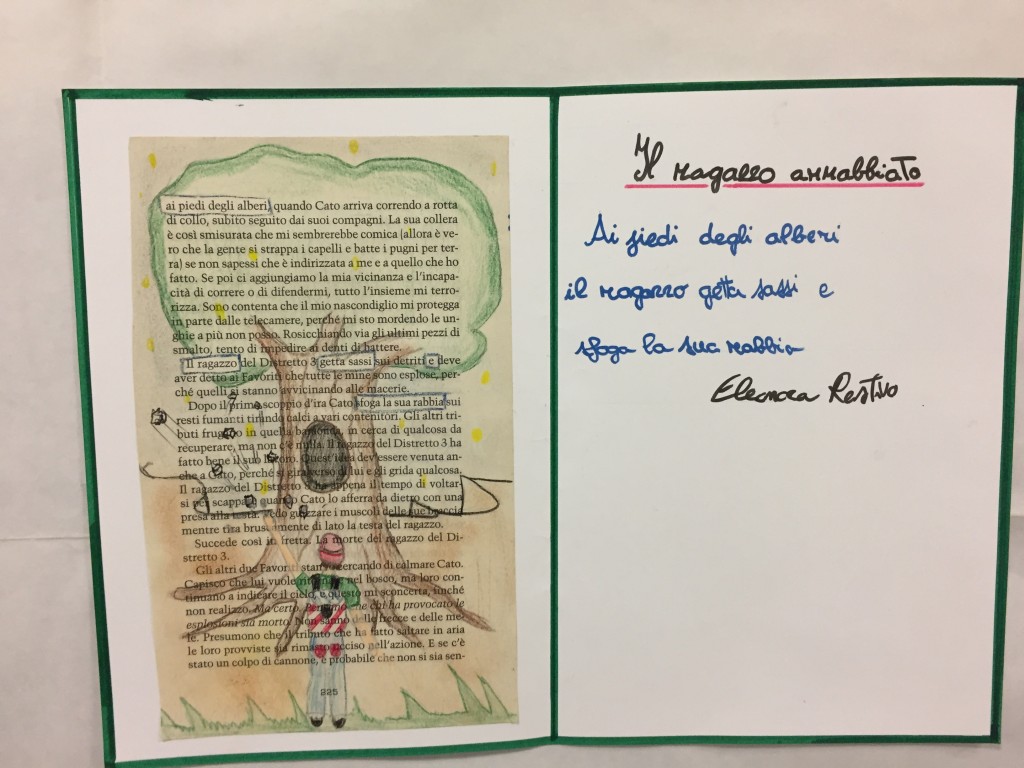 ai piedi degli alberi, quando Cato arriva correndo a rotta
di collo, subito seguito dai suoi compagni. La sua collera
è così smisurata che mi sembrerebbe comica (allora è ve-
ro che la gente si strappa i capelli e batte i pugni per ter-
ra) se non sapessi che è indirizzata a me e a quello che ho
fatto. Se poi ci aggiungiamo la mia vicinanza e l'incapa-
cità di correre o di difendermi, tutto l'insieme mi terro-
rizza. Sono contenta che il mio nascondiglio mi protegga
in parte dalle telecamere, perché mi sto mordendo le un-
ghie a più non posso. Rosicchiando via gli ultimi pezzi di
smalto, tento di impedire ai denti di battere.
Il ragazzo del Distretto 3 getta sassi sui detriti e deve
aver detto ai Favoriti che tutte le mine sono esplose, per-
ché quelli si stanno avvicinando alle macerie.
Dopo il primo scoppio d'ira Cato sfoga la sua rabbia sui
resti fumanti tirando calci a vari contenitori. Gli altri tri-
buti frugano in quella baraonda, in cerca di qualcosa da
recuperare, ma non c'è nulla. Il ragazzo del Distretto 3 ha
fatto bene il suo lavoro. Quest'idea dev'essere venuta an-
che a Cato, perché si gira verso di lui e gli grida qualcosa.
Il ragazzo del Distretto 3 ha appena il tempo di voltar-
si per scappare quando Cato lo afferra da dietro con una
presa alla testa. Vedo guizzare i muscoli delle sue braccia
mentre tira bruscamente di lato la testa del ragazzo.
Succede così in fretta. La morte del ragazzo del Di-
stretto 3.
Gli altri due Favoriti stanno cercando di calmare Cato.
Capisco che lui vuole ritornare nel bosco, ma loro con-
tinuano a indicare il cielo, e questo mi sconcerta, finché
non realizzo. Ma certo. Pensano che chi ha provocato le
esplosioni sia morto. Non sanno delle frecce e delle me-
le. Presumono che il tributo che ha fatto saltare in aria
le loro provviste sia rimasto ucciso nell'azione. E se c'è
stato un colpo di cannone, è probabile che non si sia sen-
225
Il ragazzo arrabbiato
Ai piedi degli alberi
il ragazzo getta sassi e
sfoga la sua rabbia
Eleonora Restivo